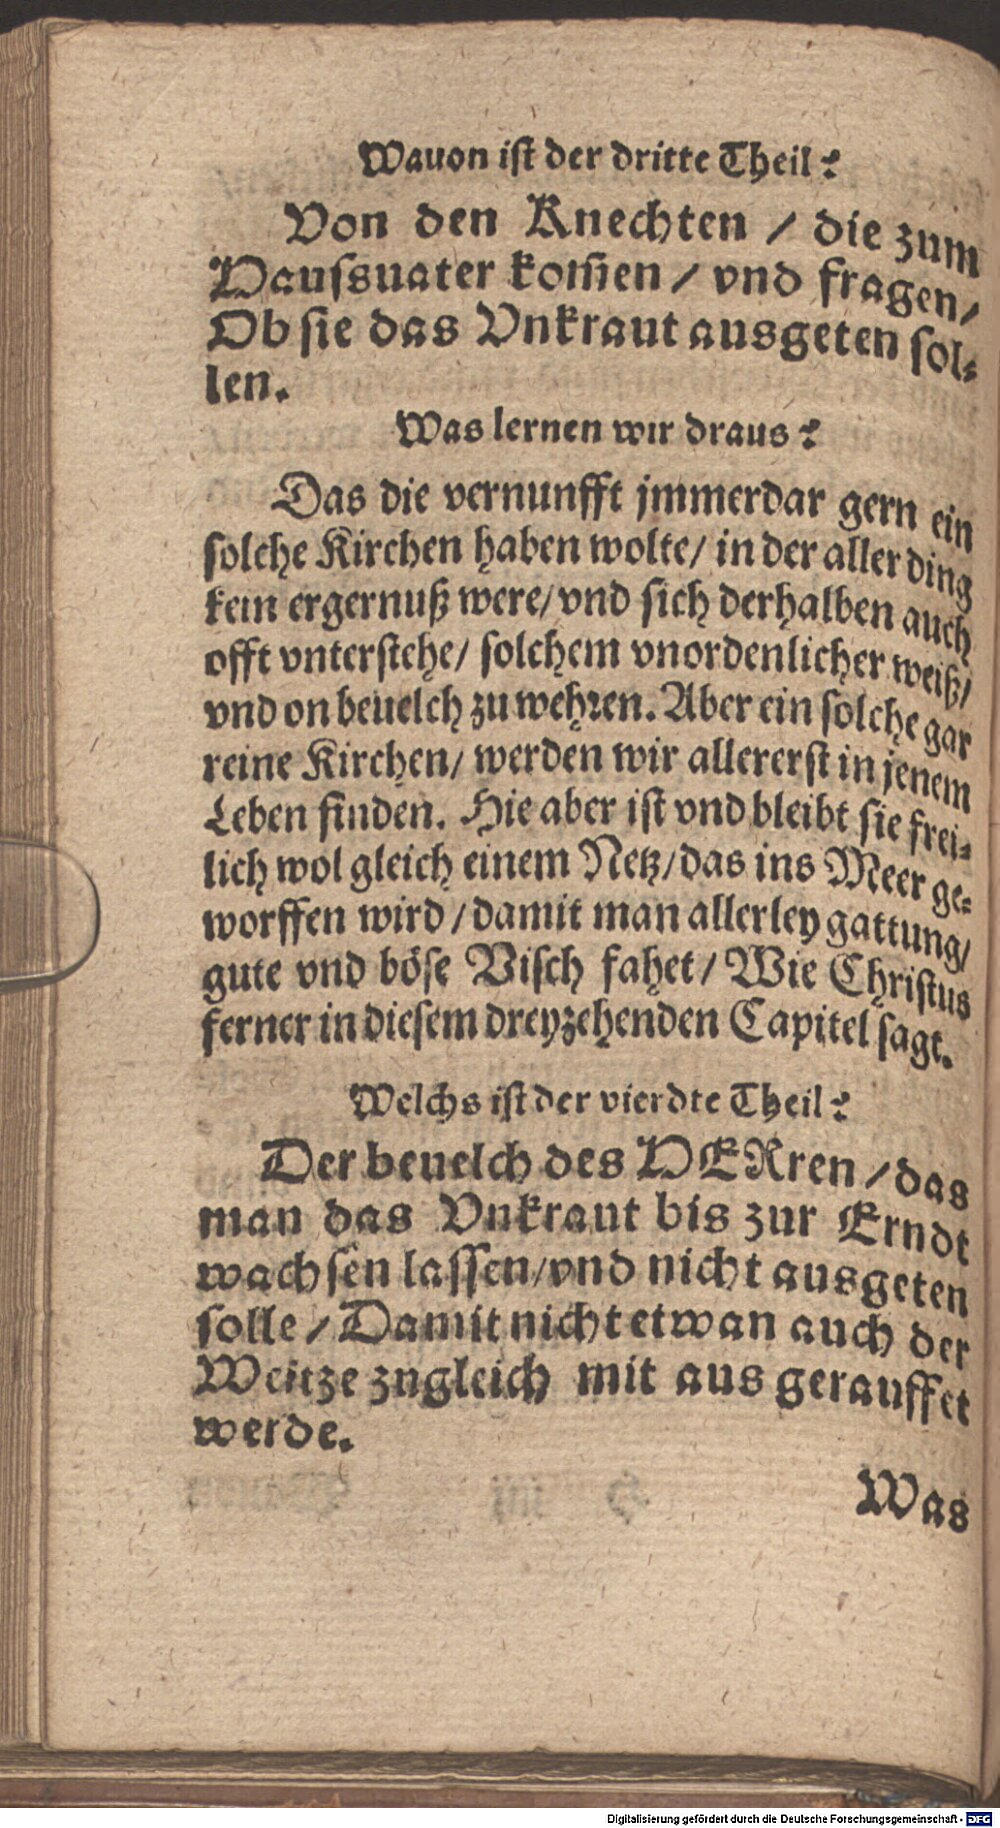 Wauon ist der dritte Theil?
Von den Knechten / die zum
Haussuater kom̃en / vnd fragen /
Ob sie das Vnkraut ausgeten sol⸗
len.
Was lernen wir draus?
Das die vernunfft jmmerdar gern ein
solche Kirchen haben wolte / in der aller ding
kein ergernuß were / vnd sich derhalben auch
offt vnterstehe / solchem vnordenlicher weiß /
vnd on beuelch zu wehren. Aber ein solche gar
reine Kirchen / werden wir allererst in jenem
Leben finden. Hie aber ist vnd bleibt sie frei⸗
lich wol gleich einem Netz / das ins Meer ge⸗
worffen wird / damit man allerley gattung /
gute vnd böse Visch fahet / Wie Christus
ferner in diesem dreyzehenden Capitel sagt.
Welchs ist der vierdte Theil?
Der beuelch des HERren / das
man das Vnkraut bis zur Erndt
wachsen lassen / vnd nicht ausgeten
solle / Damit nicht etwan auch der
Weitze zugleich mit aus gerauffet
werde.
Was
Digitalisierung gefördert durch die Deutsche Forschungsgemeinschaft - DFG